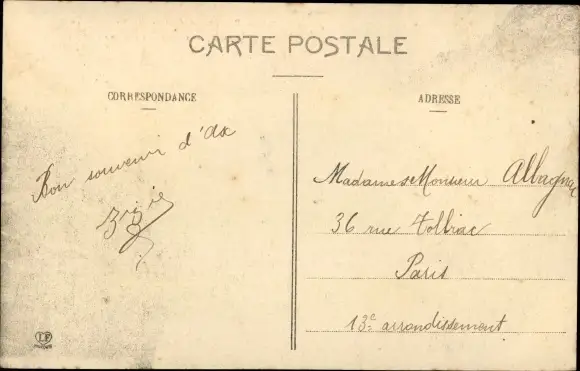 CARTE POSTALE
CORRESPONDANCE
ADRESSE
Bon souvenir d'Ax
Madame & Monsieur Albagnac
36 rue Tolbiac
Paris
13e arrondissement